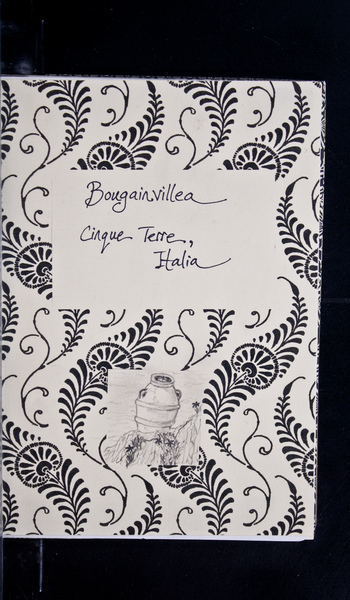 Bougainvillea
Cinque Terre,
Italia